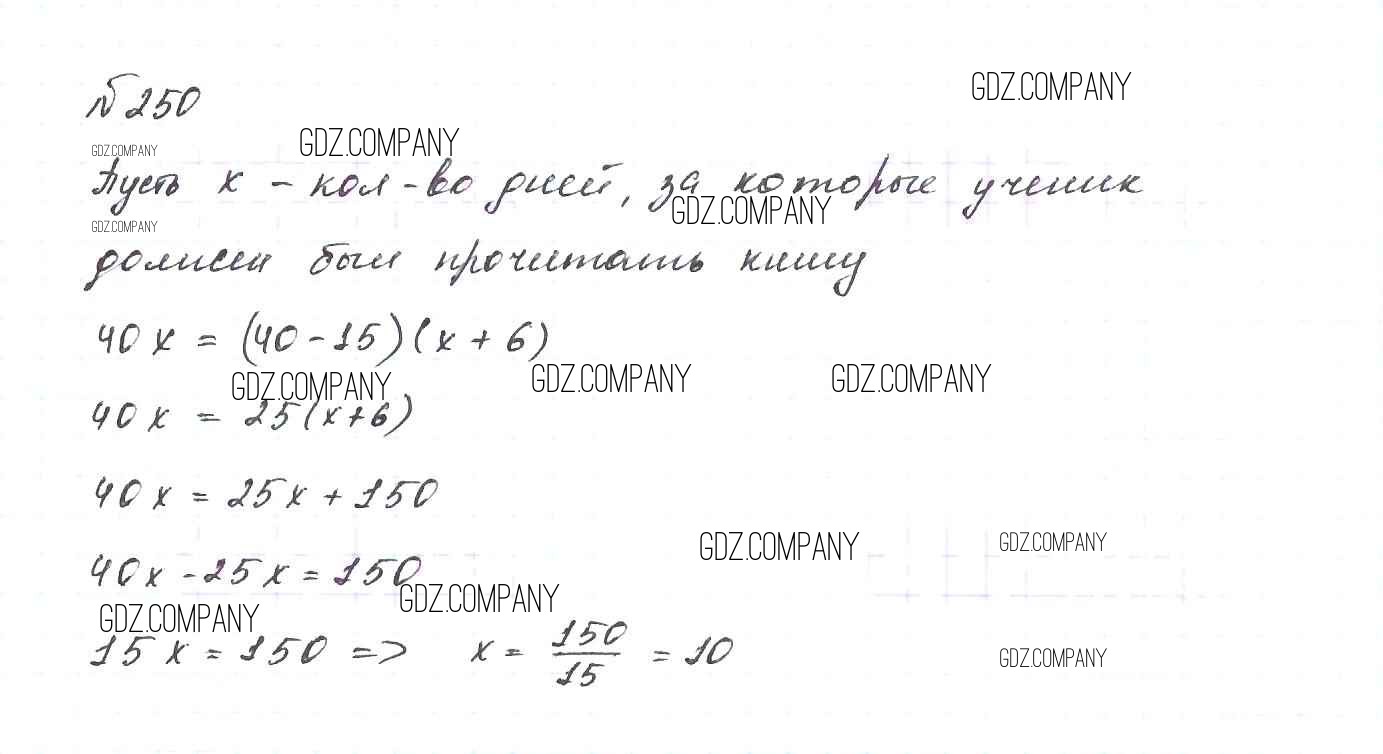 №250
GDZ.COMPANY
GDZ.COMPANY
GDZ.COMPANY
Пусть x - кол-во дней, за которые ученик
GDZ.COMPANY
GDZ.COMPANY
должен был прочитать книгу
40x = (40-15)(x+6)
GDZ.COMPANY
GDZ.COMPANY
GDZ.COMPANY
40x = 25(x+6)
40x = 25x + 150
GDZ.COMPANY
GDZ.COMPANY
40x - 25x = 150
GDZ.COMPANY
GDZ.COMPANY
15x = 150 => x = 150/15 = 10
GDZ.COMPANY